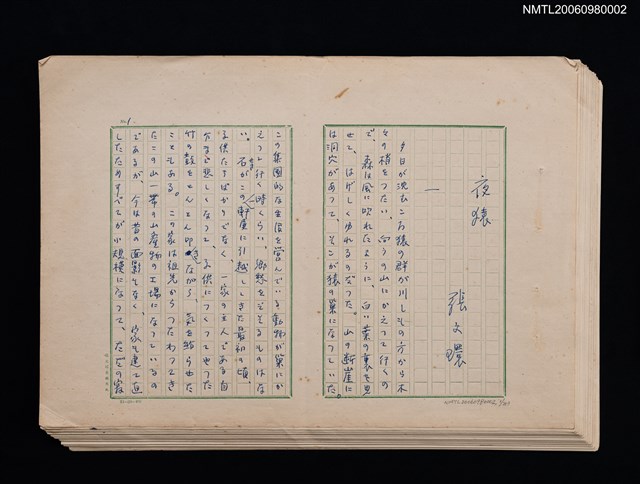 NMTL20060980002
夜猿
張文環
一
夕日が沈むころ猿の群が川しもの方から木
々の梢をつたい、向うの山にかえって行くの
で、森は風に吹れたように、白い葉の裏を見
せて、はげしくゆれるのだった。山の断崖に
は洞穴があって、そこが猿の巣になっていた。
この集團的な生活を営んでいる動物が巣にか
えって行く時くらい、郷愁をそそるものはな
い。石がこの軒屋に引越してきた最初の頃、
子供たちばかりでなく、家の主人である自
分まで悲しくなって、子供につくってやった
竹の鼓をとんとん叩きながら、気を紛らせた
ことである。この家は祖先からつたわってき
たこの山一帯の山産物の工場になっているの
であるが、今は昔の面影もなく、家も建て直
したためすべてが小規模になって、ただの家